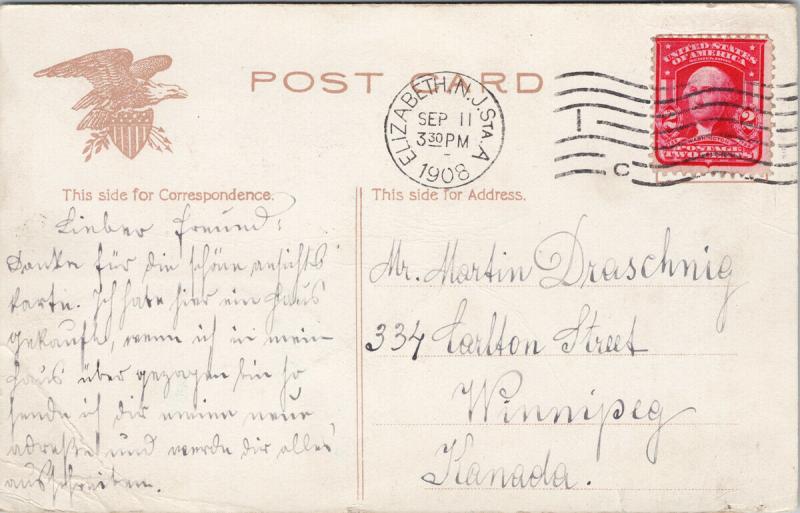 POST CARD
ELIZABETH, N.J. STA. A
SEP 11
3 30 PM
1908
C
UNITED STATES
OF AMERICA
SERIES 1902
2 2
WASHINGTON
POSTAGE
TWO CENTS
This side for Correspondence.
Lieber Freund:
Danke für die schöne ansichts
karte. Ich habe hier ein Haus
gekauft, wenn ich in mein
Haus über gezogen bin so
sende ich dir meine neue
adresse und werde dir alles
ausschreiben.
This side for Address.
Mr. Martin Draschnig
334 Carlton Street
Winnipeg
Kanada.